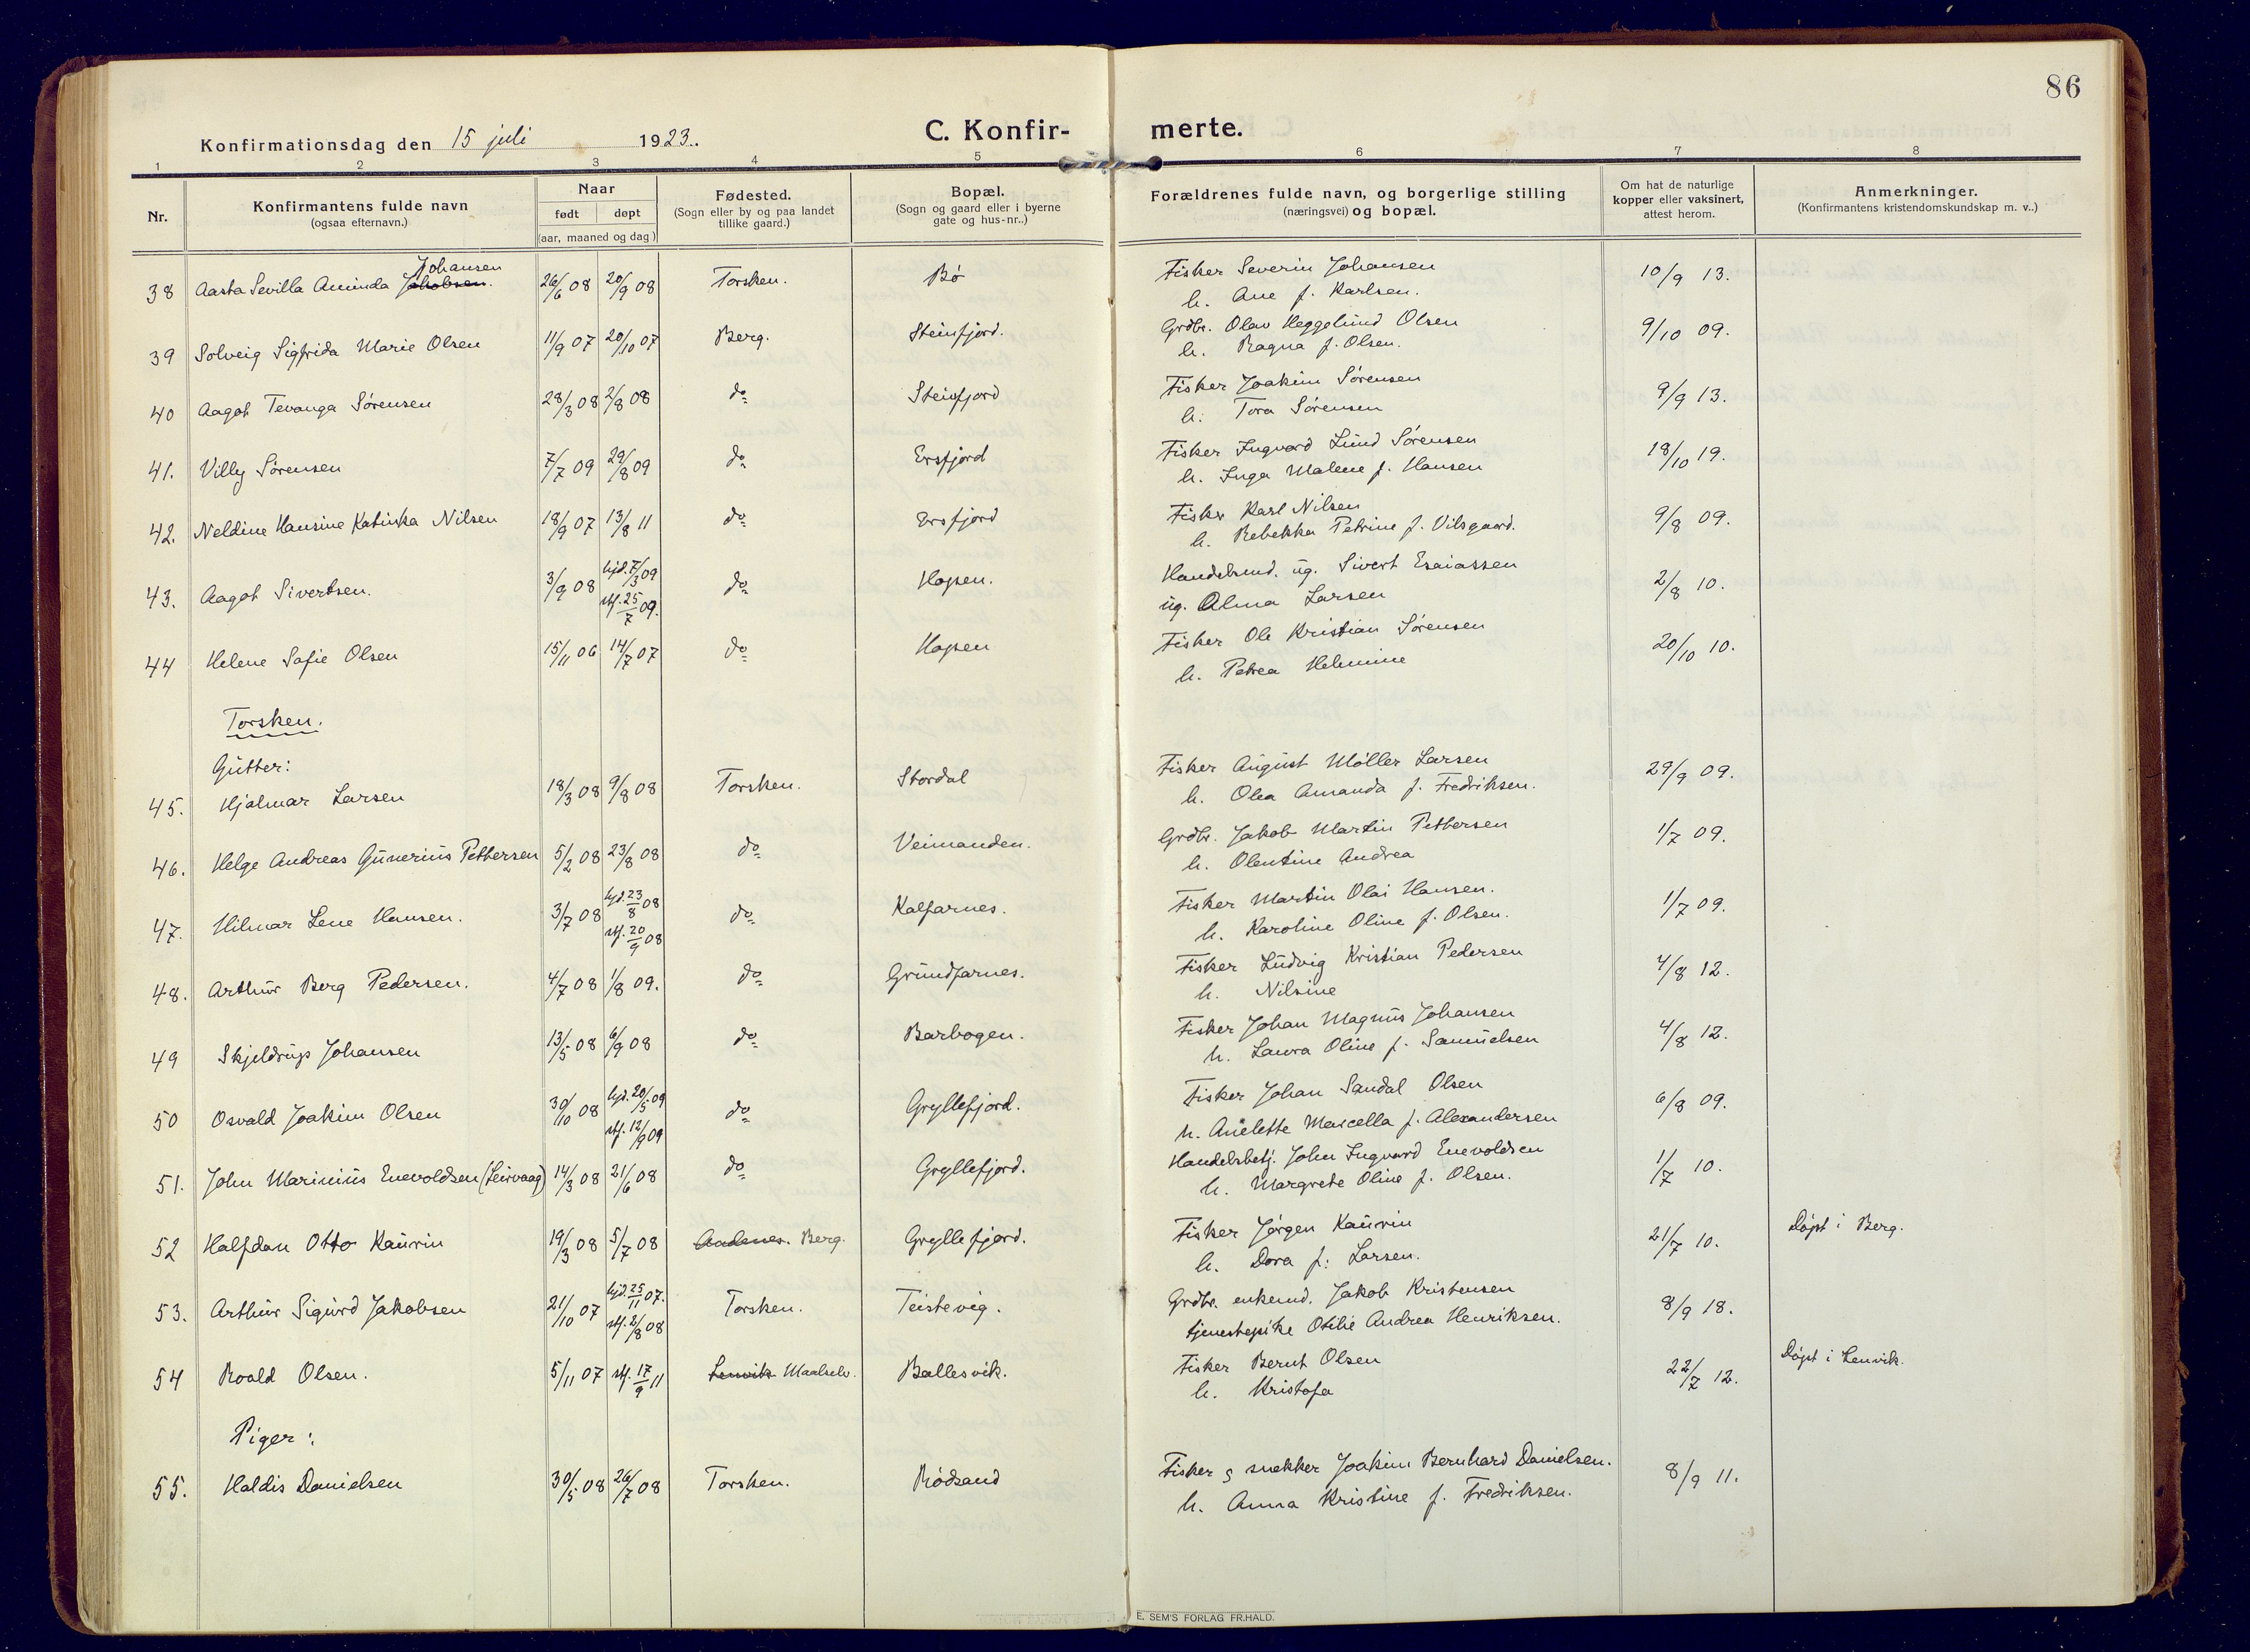 86
Konfirmationsdag den 15 juli 1923.
C. Konfir- merte.
1 2 3 4 5 6 7 8
Nr.
Konfirmantens fulde navn
(ogsaa efternavn.)
Naar
født døpt
(aar, maaned og dag)
Fødested.
(Sogn eller by og paa landet
tillike gaard.)
Bopæl.
(Sogn og gaard eller i byerne
gate og hus-nr..)
Forældrenes fulde navn, og borgerlige stilling
(næringsvei) og bopæl.
Om hat de naturlige
kopper eller vaksinert,
attest herom.
Anmerkninger.
(Konfirmantens kristendomskundskap m. v..)
Johansen
38 Aasta Sevilla Aminda Jakobsen. 26/6 08 20/9 08 Torsken. Bø Fisker Severin Johansen 10/9 13.
h. Ane f. Karlsen.
39 Solveig Sigfrida Marie Olsen 11/9 07 20/10 07 Berg. Steinfjord. Grdbr. Olav Heggelund Olsen 9/10 09.
h. Ragna f. Olsen.
40 Aagot Tevanga Sørensen 28/3 08 2/8 08 do Steinfjord Fisker Joakim Sørensen 9/9 13.
h. Tora Sørensen
41. Villy Sørensen 7/7 09 29/8 09 do Ersfjord Fisker Ingvard Lund Sørensen 18/10 19.
h. Inga Malene f. Hansen
42. Neldine Hansine Katinka Nilsen 18/9 07 13/8 11 do Ersfjord Fisker Karl Nilsen 9/8 09.
h. Rebekka Petrine f. Vilsgaard.
43. Aagot Sivertsen. 3/9 08 hjd. 7/3 09 do Hopen. Handelsmd. ug. Sivert Esaiassen 2/8 10.
stf. 25/7 09. ug. Alma Larsen
44 Helene Sofie Olsen 15/11 06 14/7 07 do Hopen Fisker Ole Kristian Sørensen 20/10 10.
h. Petrea Helmine
Torsken.
Gutter:
45. Hjalmar Larsen 18/3 08 9/8 08 Torsken. Stordal Fisker August Möller Larsen 29/9 09.
h. Olea Amanda f. Fredriksen.
46. Helge Andreas Gunerius Pettersen 5/2 08 23/8 08 do Veimanden. Grdbr. Jakob Martin Pettersen 1/7 09.
h. Olentine Andrea
47. Hilmar Lene Hansen. 3/7 08 hjd. 23/8 08 do Kalfarnes. Fisker Martin Olai Hansen. 1/7 09.
stf. 20/9 08 h. Karoline Oline f. Olsen.
48. Arthur Berg Pedersen. 4/7 08 1/8 09. do Grundfarnes. Fisker Ludvig Kristian Pedersen 4/8 12.
h. Nilsine
49 Skjeldrup Johansen 13/5 08 6/9 08 do Barbogen. Fisker Johan Magnus Johansen 4/8 12.
h. Laura Oline f. Samuelsen
50 Osvald Joakim Olsen 30/10 08 hjd. 20/5 09 do Gryllefjord. Fisker Johan Sandal Olsen 6/8 09.
stf. 12/9 09 h. Anelette Marcella f. Alexandersen
51. John Marinius Enevoldsen (Leirvaag) 14/3 08 21/6 08 do Gryllefjord. Handelsbetj. John Ingvard Enevoldsen 1/7 10.
h. Margrete Oline f. Olsen.
52 Halfdan Otto Kaurin 19/3 08 5/7 08 Andenes. Berg. Gryllefjord. Fisker Jørgen Kaurin 21/7 10. Døpt i Berg.
h. Dora f. Larsen.
53. Arthur Sigurd Jakobsen 21/10 07 hjd. 25/11 07. Torsken. Teistevig. Grdbr. enkemd. Jakob Kristensen 8/9 18.
stf. 2/8 08 tjenestepike Otilie Andrea Henriksen.
54 Roald Olsen. 5/11 07 stf. 17/9 11 Lenvik Maalselv. Ballesvik. Fisker Bernt Olsen 22/7 12. Døpt i Lenvik.
h. Kristofa
Piger:
55. Haldis Danielsen 30/5 08 26/7 08 Torsken. Rødsand Fisker g snekker Joakim Bernhard Danielsen. 8/9 11.
h. Anna Kristine f. Fredriksen.
E. SEM'S FORLAG FR.HALD.